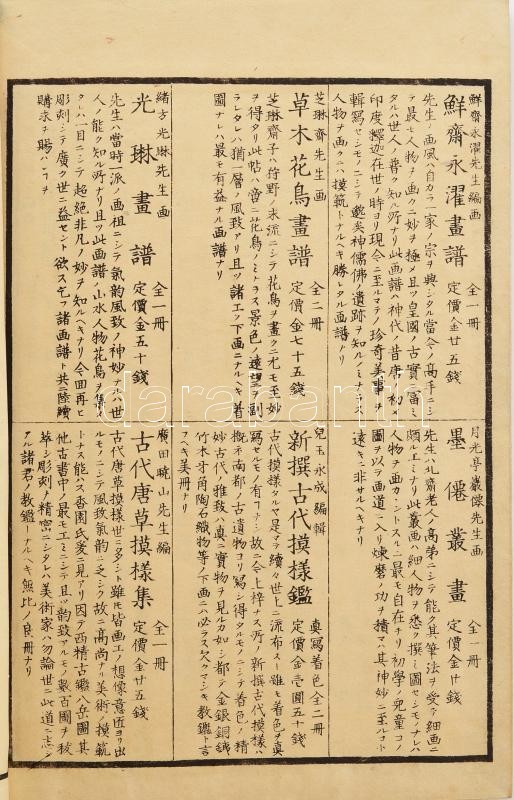 鮮齋永濯先生編画
鮮齋永濯畫譜 全一冊 定價金廿五錢
先生ノ画風ハ自カラ一家ノ宗ヲ興シタル當今ノ高手ニシ
テ最モ人物ヲ画クニ妙ヲ極メ且ツ皇國ノ古實ニ富ミ
タルハ世人ノ普ク知ル所ナリ此画譜ハ神代ノ昔唐ノ初メ
印度釋迦在世ノ時ヨリ現今ニ至ルマテノ珍奇美事ヲ
輯寫セシモノニシテ
神儒佛ノ遺跡ヲ知ルノミナラス
人物ヲ画クニハ摸範トナルヘキ勝レタル画譜ナリ
芝琳齋先生画
草木花鳥畫譜 全二冊 定價金七十五錢
芝琳齋子ハ狩野ノ末流ニシテ花鳥ヲ畫クニ尤モ至妙
ヲ得タリ此帖ハ啻ニ花鳥ノミナラス景色ノ遠望ニ副
ラレタレハ猶一層ノ風致アリ且ツ諸工ノ下画ニナルヘキ着
圖ナレハ最モ有益ナル画譜ナリ
緒方光琳先生画
光琳畫譜 全一冊 定價金五十錢
先生ハ當時一派ノ画祖ニシテ氣韵風致ノ神妙ナルハ世
人ノ能ク知ル所ナリ且ツ此画譜ノ山水人物花鳥ヲ集
タレハ一目ニシテ超絶非凡ノ妙ヲ知ルヘキナリ今回再ヒ
彫刻シテ廣ク世ニ益セント欲ス乞フ諸画譜ト共ニ陸續
購求ヲ賜ハンコヲ
月光亭墨僊先生画
墨僊叢畫 全一冊 定價金廿錢
先生ハ北齋老人ノ高弟ニシテ能ク其筆法ヲ受ケ細画ニ
頗ル工ミナリ此叢画ハ細人物ヲ悉ク撰ミ圖セシモノナレハ
人物ヲ画カントスルニ最モ自在ナリ初學ノ児童コノ
圖ヲ以テ画道ニ入リ煉磨ノ功ヲ積マハ其神妙ニ至ルコト
遠キニ非サルヘキナリ
兒玉永成編輯
新撰古代摸樣鑑 真寫着色全二冊 定價金壱圓五十錢
古代摸樣タルヤ是マテ續々世上ニ流布スト雖モ着色ヲ真
寫セルモノ有コナシ故ニ今上梓ナス所ノ新撰古代摸樣ハ
概ネ南都ノ古遺物ヨリ寫シ得タルモノニシテ着色ノ精
妙古代ノ雅致ハ真ニ實物ヲ見ルカ如シ都テ金銀銅鉄
竹木牙角陶石織物等ノ下画ニハ必ラス欠クマシキ教鑑ト言
ヘキ美冊ナリ
廣田暁山先生編
古代唐草摸樣集 全一冊 定價金廿五錢
古代唐草摸樣世ニ多シト雖モ皆画工ノ想像意匠ヨリ出
ルモノニシテ風致氣韵ニ乏シク故ニ高尚ナリ美術ノ摸範
トナス能ハス香園氏爰ニ見アリ因テ西精古鑑八岳圖其
他古書中ノ最モエミニシテ且ツ韵致アルモノ数百圖ヲ秡
萃シ彫刻ノ精密ニシタレハ美術家ハ勿論世ニ此道ニ志シ
アル諸君ノ教鑑トナルヘキ無比ノ良冊ナリ
darabanth